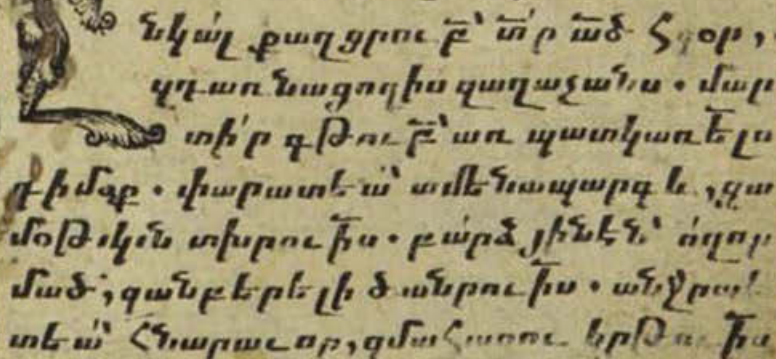 նկա՛լ քաղցրու բ՟՝ տ՟ր ա՟ծ հզօր,
զդառնացողիս զաղաչանս . մա
տի՛ր գթու բ՟՝ առ պատկառե՟լս
դիմօք . փարատեա՛՝ ամենապարգև, զա
մօթական տխրու ի՟ս . բա՛րձ յինէն՝ ողոր
մած՛, զանբերելի ծանրու ի՟ս . անջրպ
տեա՛՝ հնարաւոր, զմահացու կրթու ի՟ս